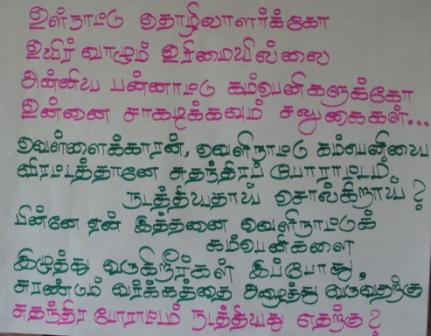 உள்நாட்டு தொழிலாளர்க்கோ
உயிர் வாழும் உரிமையில்லை
அன்னிய பன்னாட்டு கம்பெனிகளுக்கோ
உன்னை சாகடிக்கவும் சலுகைகள்...
வெள்ளைக்காரன், வெளிநாட்டு கம்பெனியை
விரட்டத்தானே சுதந்திரப் போராட்டம்
நடத்தியதாய் சொல்கிறாய்?
பின்னே ஏன் இத்தனை வெளிநாட்டுக்
கம்பெனிகளை
இழுத்து வருகிறீர்கள் இப்போது,
சுரண்டும் வர்க்கத்தை அழைத்து வருவதற்கு
சுதந்திர போராட்டம் நடத்தியது எதற்கு?